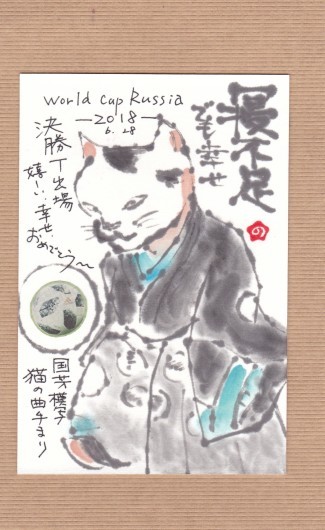 World Cup Russia
―2018―
6.28
寝不足
でも幸せ
の
決勝T出場
嬉しい 幸せ
おめでとう〜
国芳模写
猫の曲手まり